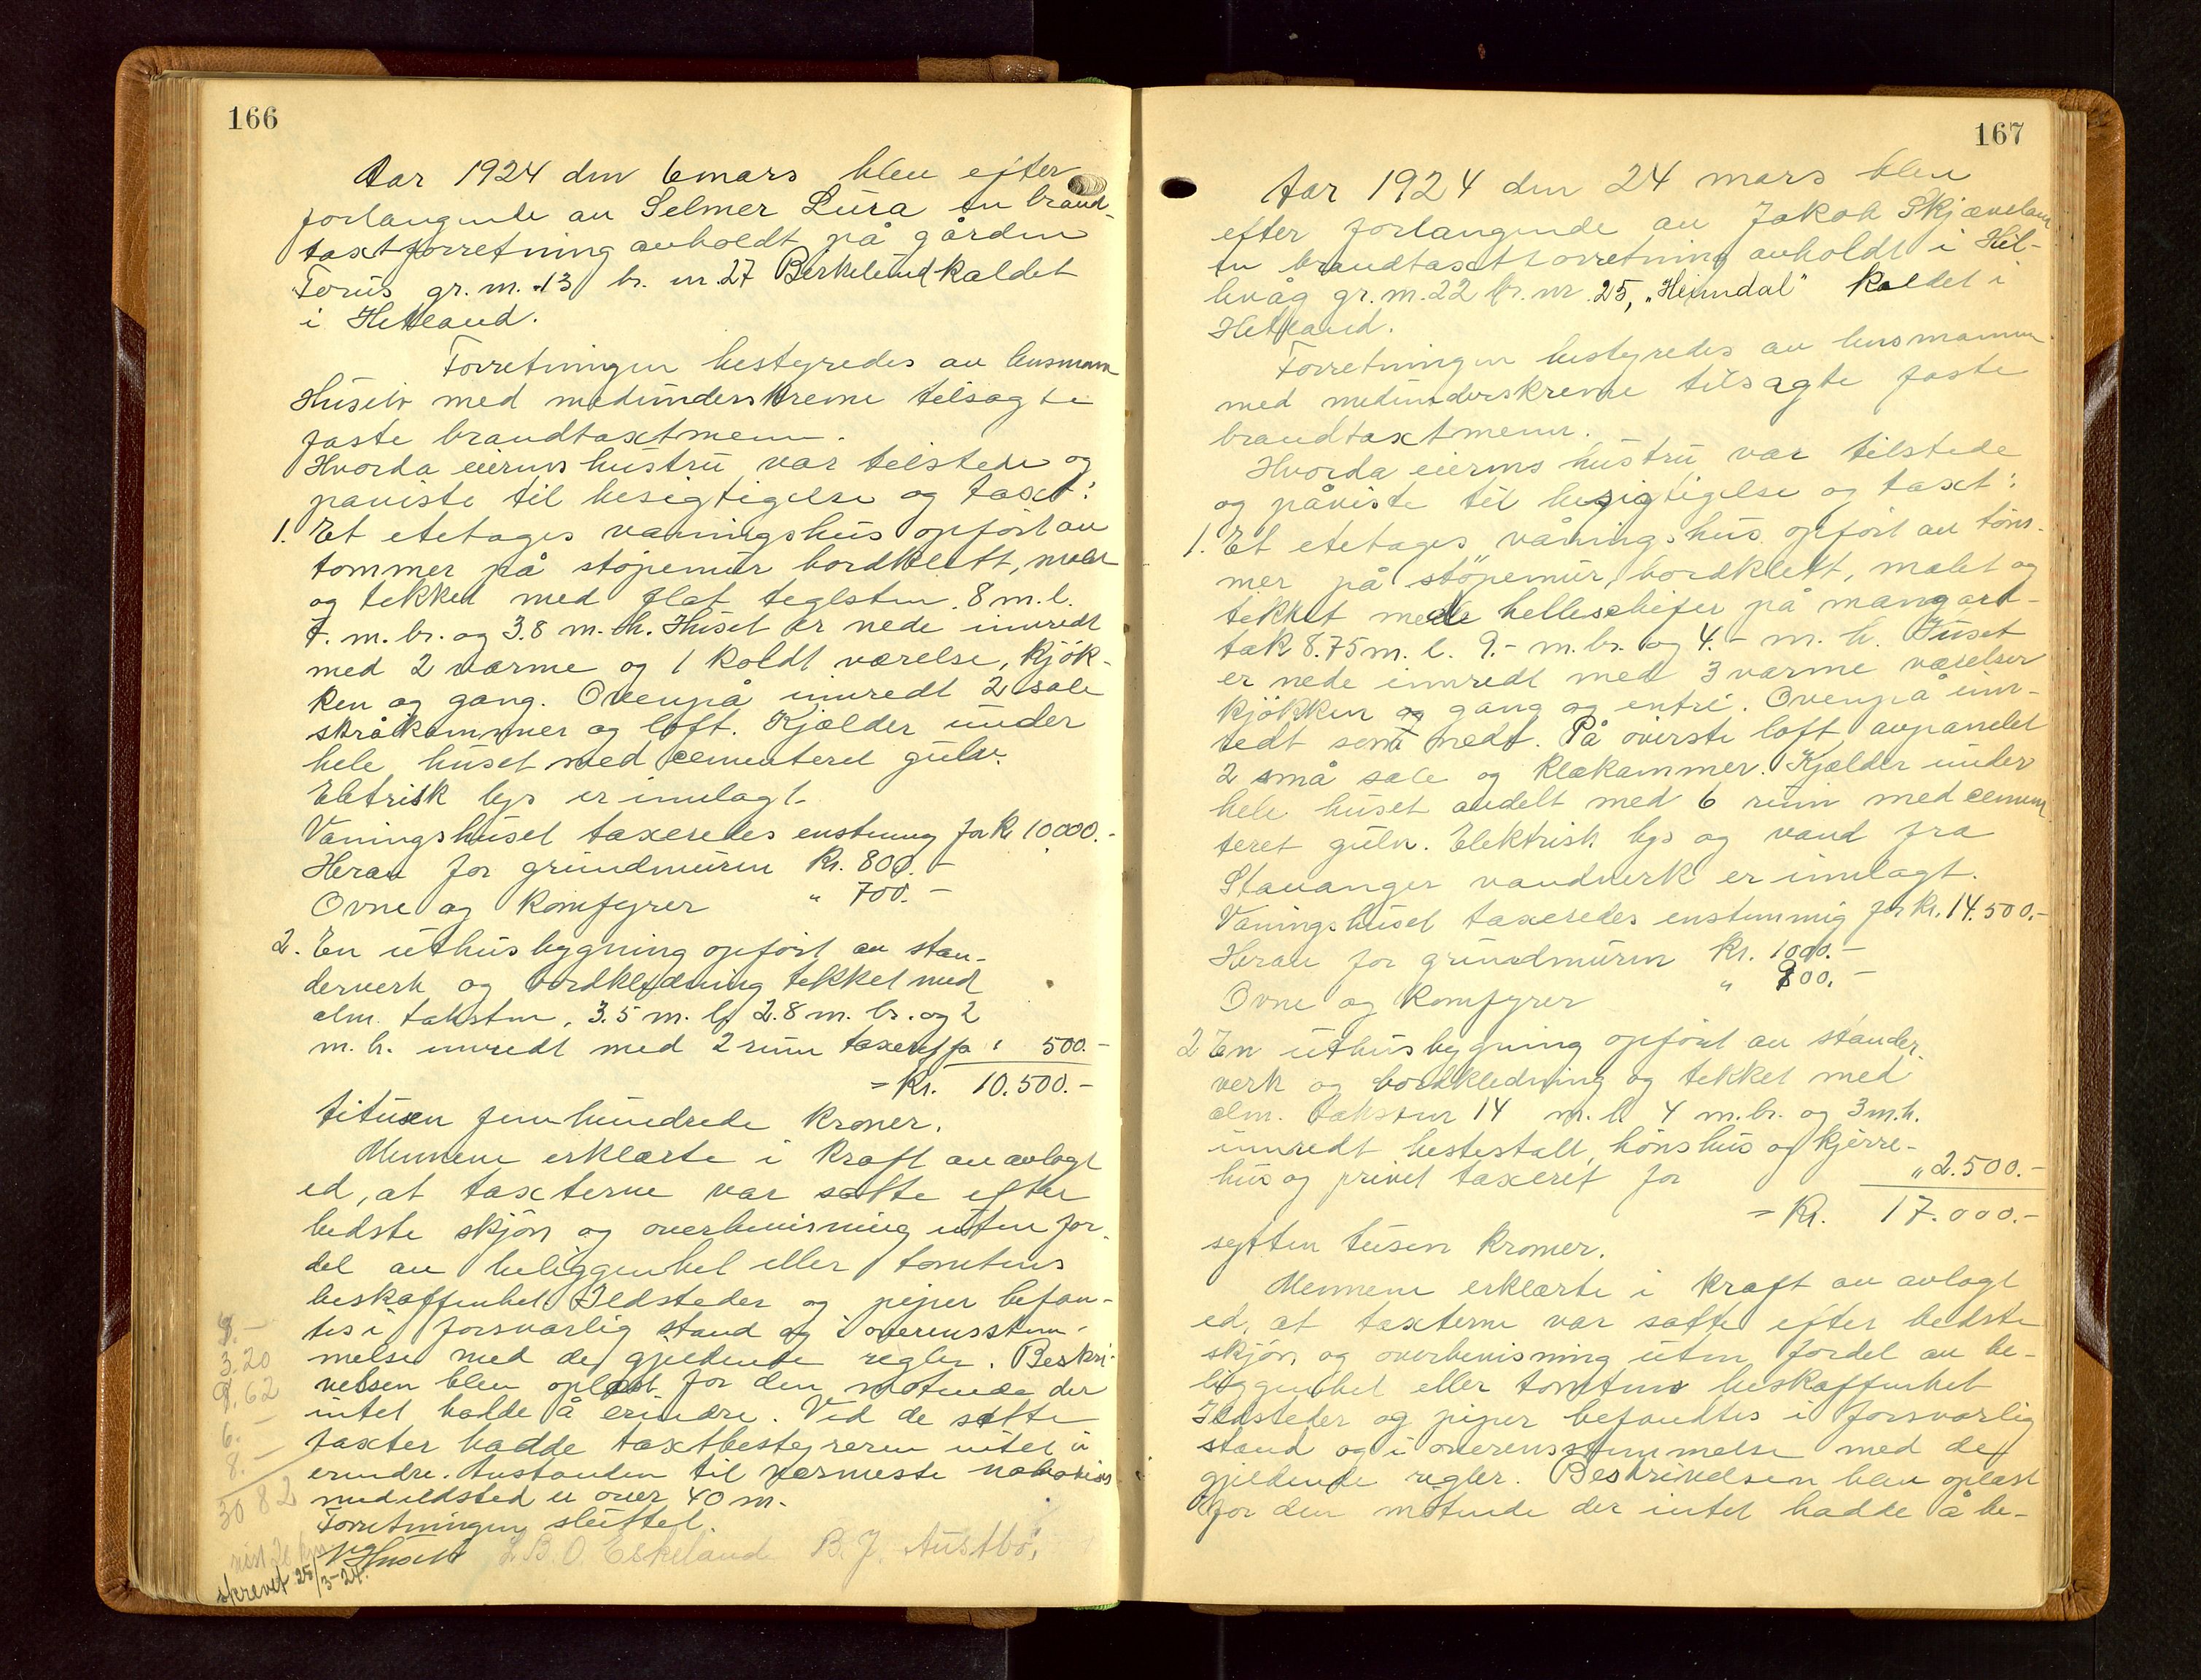 166
Aar 1924 den 6 mars blev efter
forlangende av Selmer Lura en brand-
taxtforretning avholdt på gården
Forus gr. nr. 13 br. nr. 27 Berkelund kaldet
i Hetland.
Forretningen bestyredes av lensmann
Husebø med medunderskrevne tilsagte
faste brandtaxtmenn.
Hvorda eierens hustru var tilstede og
paviste til besigtigelse og taxt:
1. Et etetages vaningshus opført av
tømmer på støpemur bordklett, malt
og tekket med flat teglsten. 8 m. l.
7. m. br. og 3.8 m. h. Huset er nede innredt
med 2 varme og 1 koldt værelse, kjøk-
ken og gang. Ovenpå innredt 2 sale
skråkammer og loft. Kjælder under
hele huset med cementeret gulv.
Eletrisk lys er innlagt.
Våningshuset taxeredes enstemig for kr 10000.-
Herav for grundmuren Kr. 800.-
Ovne og komfyrer " 700.-
2. En uthusbygning opført av stan-
derverk og bordkledning tekket med
alm. taksten, 3.5 m. l. 2.8 m. br. og 2
m. h. innredt med 2 rum taxeret fo : 500.-
= Kr. 10.500.-
titusen femhundrede kroner.
Mennene erklærte i kraft av avlagt
ed, at taxterne var satte efter
bedste skjøn og overbevisning uten for-
del av beliggenhet eller tomtens
beskaffenhet Ildsteder og piper befan-
tes i forsvarlig stand og i overensstem-
melse med de gjeldende regler. Beskri-
velsen blev oplæst for den møtende der
intet hadde å erindre. Ved de satte
taxter hadde taxtbestyreren intet å
erindre. Avstanden til nærmeste nabohus
med ildsted er over 40 m.
Forretningen sluttet.
Husebø L. B. O. Eskeland B. J. Austbø.
9.-
3.20
9.62
6.-
8.-
30 82
skrevet 25/3-24.
167
Aar 1924 den 24 mars blev
efter forlangende av Jakob Skjæveland
en brandtaxtforretning avholdt i Hil-
levåg gr. nr. 22 br. nr. 25, „Heimdal" kaldet i
Hetland.
Forretningen bestyredes av lensmannen
med medunderskrevne tilsagte faste
brandtaxtmenn.
Hvorda eierens hustru var tilstede
og påviste til besigtigelse og taxt:
1. Et etetages våningshus opført av tøm-
mer på støpemur, bordklett, malet og
tekket med helleskifer på mangart-
tak 8.75 m. l. 9.- m. br. og 4.- m. h. Huset
er nede innredt med 3 varme værelser
kjøkken og gang og entré. Ovenpå inn-
redt som nedt. På øverste loft avpanelet
2 små sale og klækammer. Kjælder under
hele huset avdelt med 6 rum med cemen-
teret gulv. Elektrisk lys og vand fra
Stavanger vandverk er innlagt.
Våningshuset taxeredes enstemmig for kr. 14.500.-
Herav for grundmuren Kr. 1000.-
Ovne og komfyrer " 900.-
2 En uthusbygning opført av stander-
verk og bordkledning og tekket med
alm. taksten 14 m. l. 4 m. br. og 3 m. h.
innredt hestestall, hønshus og kjerre-
hus og privet taxeret for " 2.500.-
= Kr. 17.000.-
sytten tusen kroner.
Mennene erklærte i kraft av avlagt
ed, at taxterne var satte efter bedste
skjøn, og overbevisning uten fordel av be-
liggenhet eller tomtens beskaffenhet
Ildsteder og piper befandtes i forsvarlig
stand og i overensstemmelse med de
gjeldende regler. Beskrivelsen blev oplæst
for den møtende der intet hadde å be-